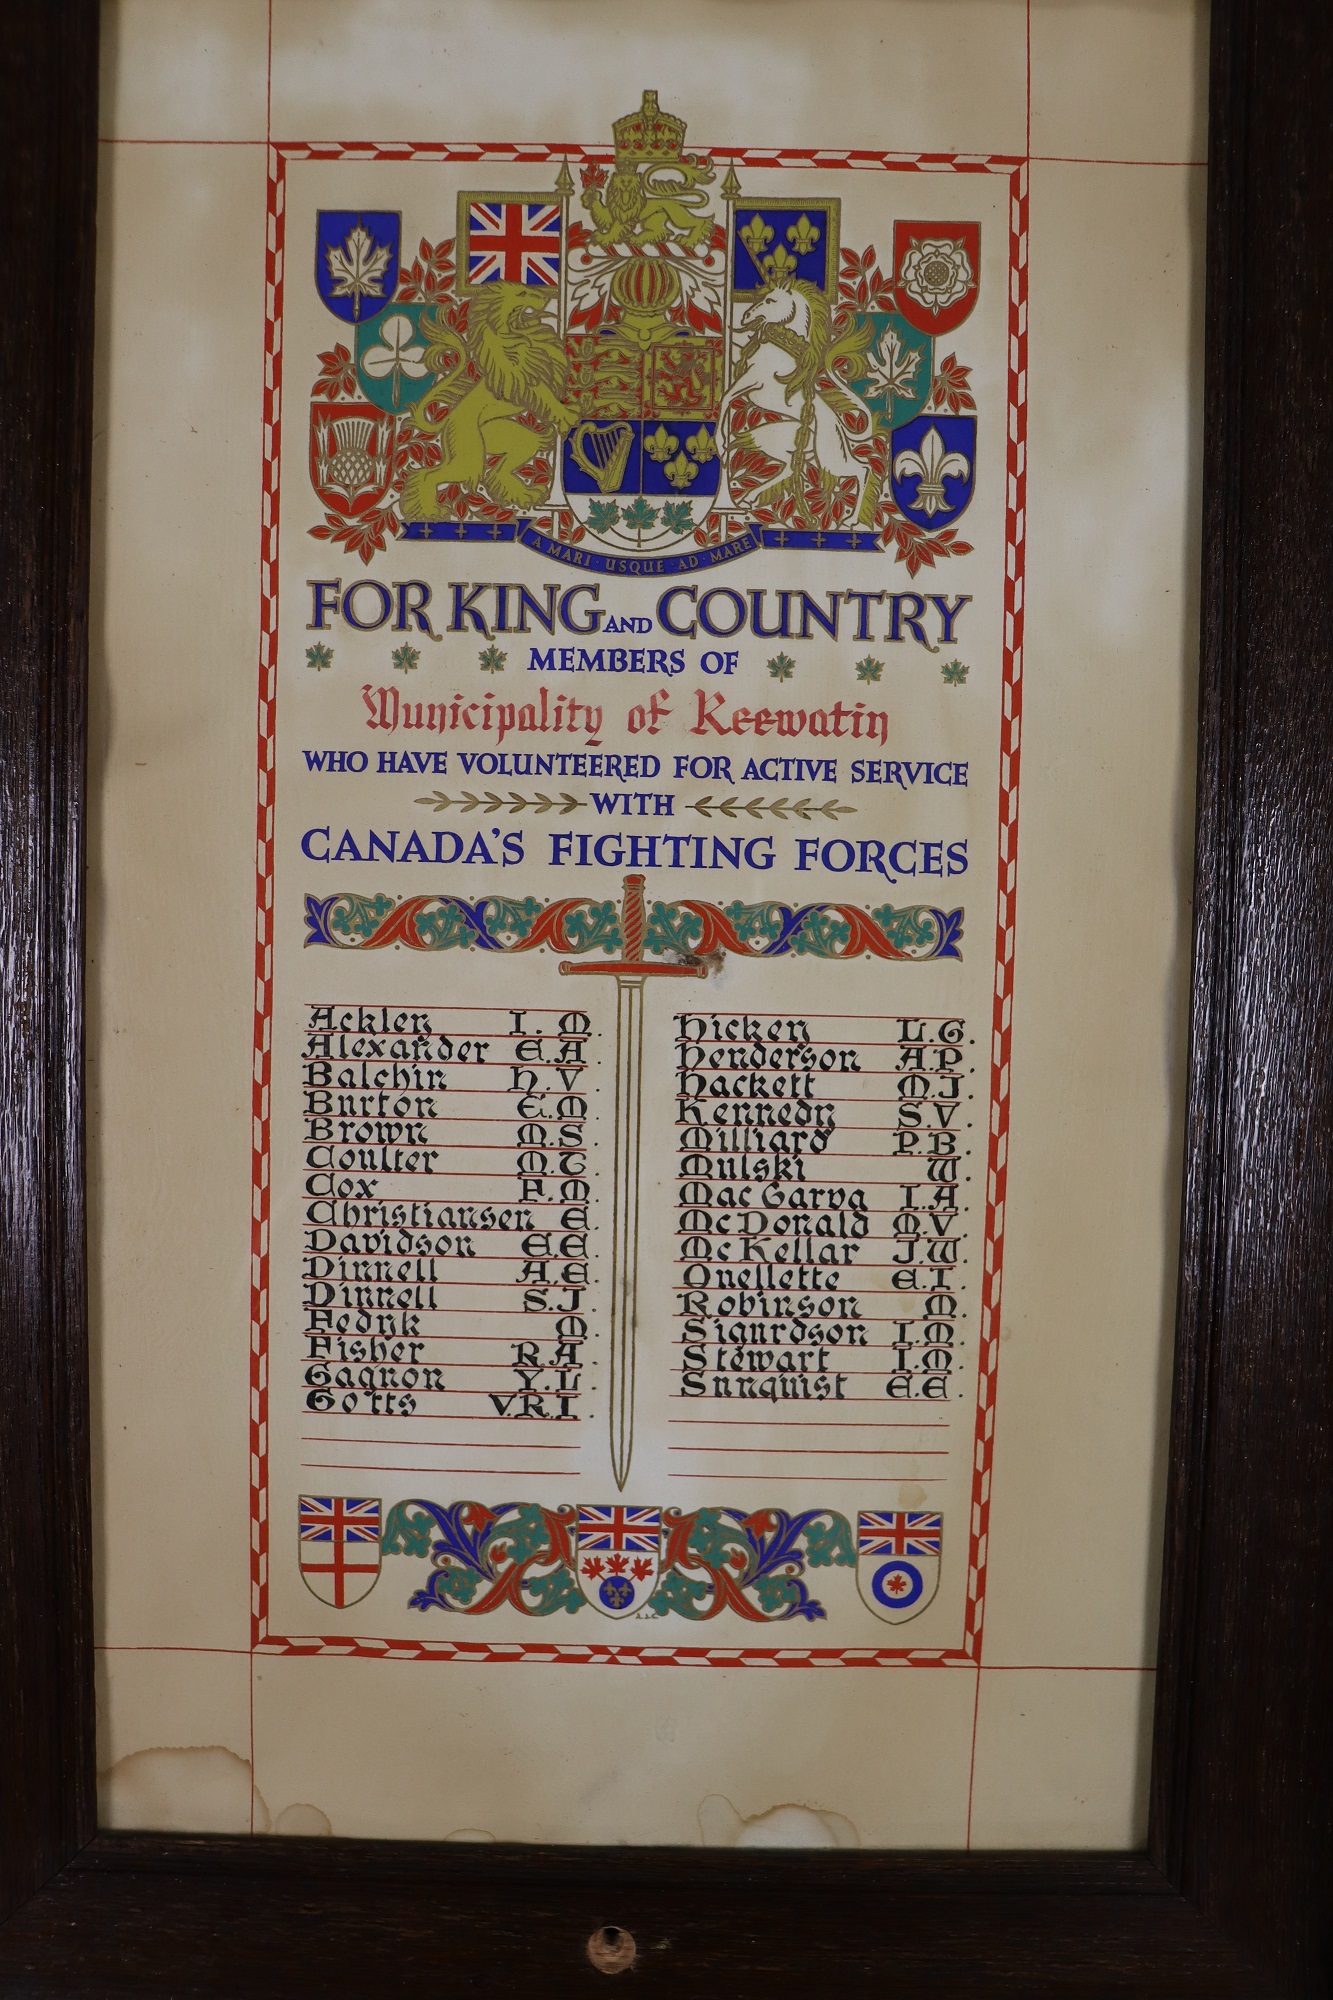 A MARI · USQUE · AD · MARE
FOR KING AND COUNTRY
MEMBERS OF
Municipality of Keewatin
WHO HAVE VOLUNTEERED FOR ACTIVE SERVICE
WITH
CANADA'S FIGHTING FORCES
Ackley I. M.
Alexander E.A.
Balchin H.V.
Burton G.M.
Brown M.S.
Coulter M.T.
Cox F.M.
Christiansen E.
Davidson E.E.
Dinnell A.E.
Dinnell S.J.
Fedyk M.
Fisher R.A.
Gagnon Y.L.
Gotts V.R.I.
Hickey L.G.
Henderson A.P.
Hackett M.J.
Kennedy S.V.
Milliard P.B.
Mulski W.
MacGarva I.A.
McDonald M.V.
McKellar J.W.
Ouellette E.I.
Robinson M.
Sigurdson I.M.
Stewart I.M.
Sunquist E.E.